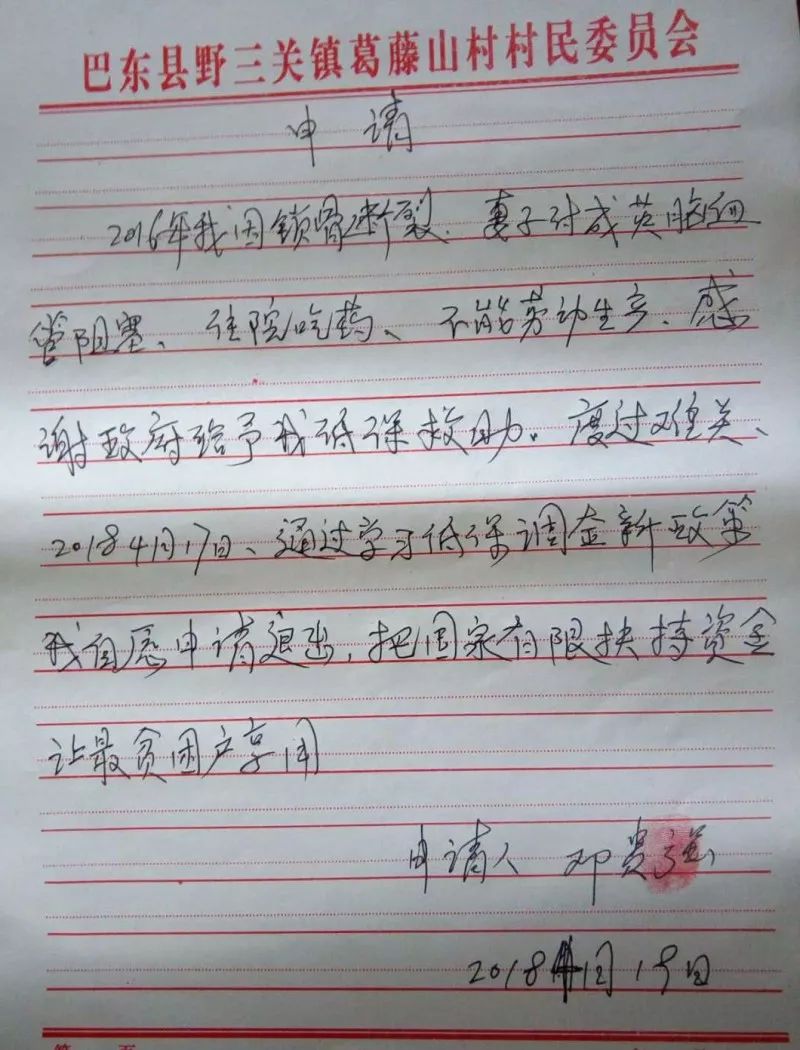 巴东县野三关镇葛藤山村村民委员会
申请
2016年我因锁骨断裂、妻子谢成英脑血
管阻塞、住院吃药、不能劳动生产、感
谢政府给予我低保救助。度过难关、
2018 4月17日、通过学习低保调金新政策
我自愿申请退出,把国家有限扶持资金
让最贫困户享用
申请人 邓贵强
2018 月19日
第 页